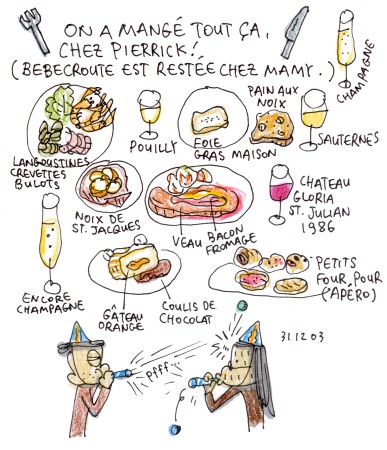 ON A MANGÉ TOUT ÇA,
CHEZ PIERRICK!
(BEBECROUTE EST RESTÉE CHEZ MAMY.)
CHAMPAGNE
LANGOUSTINES
CREVETTES
BULOTS
POUILLY
FOIE
GRAS MAISON
PAIN AUX
NOIX
SAUTERNES
NOIX DE
ST. JACQUES
VEAU BACON
FROMAGE
CHATEAU
GLORIA
ST. JULIAN
1986
ENCORE
CHAMPAGNE
GÂTEAU
ORANGE
COULIS DE
CHOCOLAT
PETITS
FOUR, POUR
(L'APÉRO)
31.12 03
PFFF...
S...